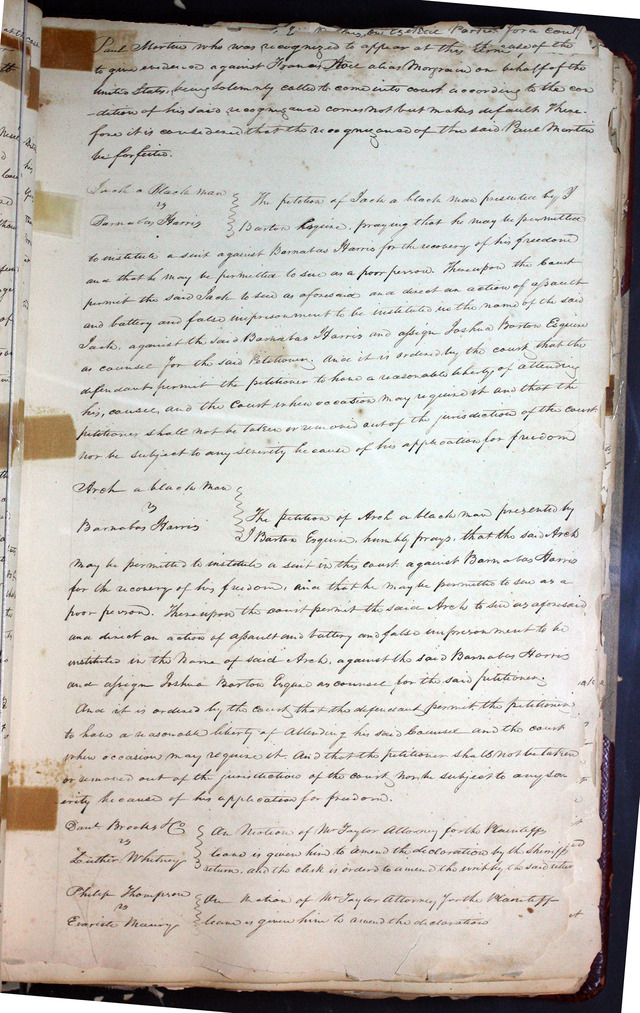 Paul Martin who was recognized to appear at this term
to give evidence against Francis alias on behalf of the
United States, being solemnly called to come into court according to the con
dition of his said recognizance comes not but makes default There
fore it is considered that the recognizance of the said Paul Martin
be forfeited.
Jack a Black man
vs
Barnabas Harris
The petition of Jack a black man presented by J
Barton Esquire, praying that he may be permitted
to institute a suit against Barnabas Harris for the recovery of his freedom
and that he may be permitted to sue as a poor person. Thereupon the Court
permit the said Jack to sue as aforesaid and direct an action of assault
and battery and false imprisonment to be instituted in the name of the said
Jack, against the said Barnabas Harris and assign Joshua Barton Esquire
as counsel for the said Petitioner. And it is ordered by the court that the
defendant permit the petitioner to have a reasonable liberty of attending
his counsel, and the Court when occasion may require it and that the
petitioner shall not be taken or removed out of the jurisdiction of the court
nor be subject to any severity because of his application for freedom
Arch a black man
vs
Barnabas Harris
The petition of Arch a black man presented by
J Barton Esquire, humbly prays, that the said Arch
may be permitted to institute a suit in this court against Barnabas Harris
for the recovery of his freedom, and that he may be permitted to sue as a
poor person. Thereupon the court permit the said Arch to sue as aforesaid
and direct an action of assault and battery and false imprisonment to be
instituted in the Name of said Arch, against the said Barnabas Harris
and assign Joshua Barton Esquire as counsel for the said petitioner.
And it is ordered by the court that the defendant permit the petitioner
to have a reasonable liberty of attending his said Counsel and the court
when occasion may require it. And that the petitioner shall not be taken
or removed out of the jurisdiction of the court nor be subject to any sev
erity because of his application for freedom.
Paul Brooks & Co
vs
Luther Whitney
On Motion of Mr Taylor Attorney for the Plaintiffs
leave is given him to amend the declaration by the Sheriffs
return, and the clerk is ordered to amend the writ by the said return
Philip Thompson
vs
Evariste Maury
On Motion of Mr Taylor Attorney for the Plaintiff
leave is given him to amend the declaration